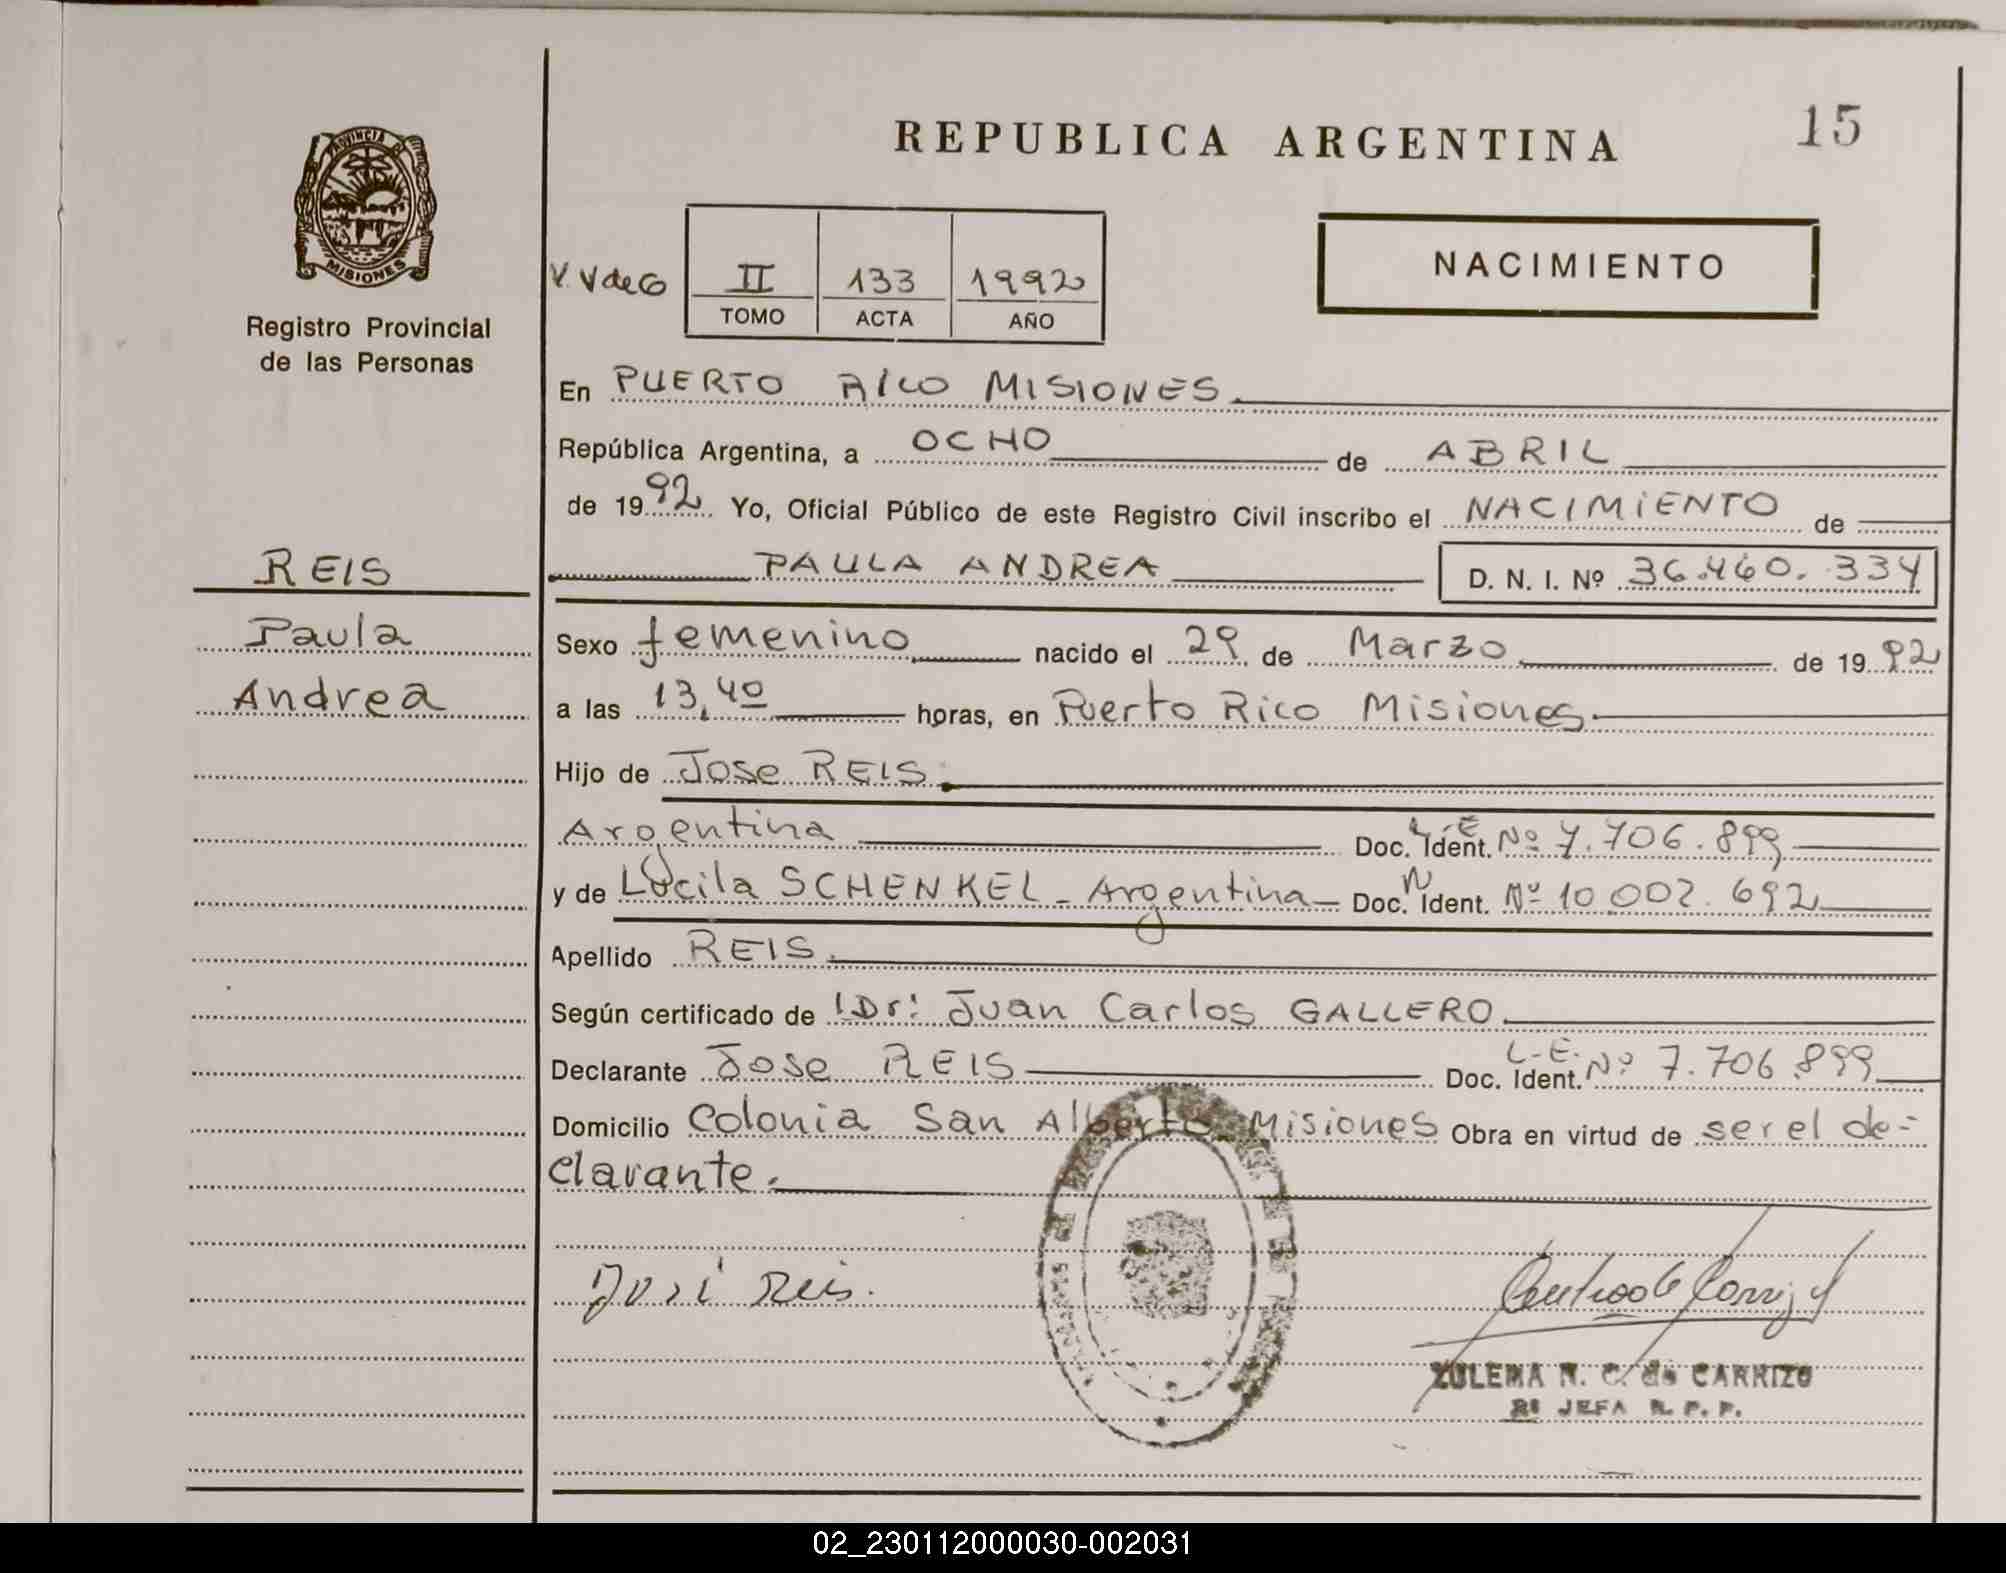 REPUBLICA ARGENTINA
15
PROVINCIA DE
MISIONES
Registro Provincial
de las Personas
V. V de G
II
133
1992
TOMO
ACTA
AÑO
NACIMIENTO
En PUERTO RICO MISIONES.
República Argentina, a OCHO de ABRIL
de 1992 Yo, Oficial Público de este Registro Civil inscribo el NACIMIENTO de
PAULA ANDREA
D. N. I. Nº 36.460.334
REIS
Paula
Andrea
Sexo femenino nacido el 29 de Marzo de 1992
a las 13,40 horas, en Puerto Rico Misiones.
Hijo de Jose REIS.
Argentina Doc. Ident. L.E Nº 7.706.899
y de Lucila SCHENKEL - Argentina - Doc. Ident. Nº 10.002.692
Apellido REIS.
Según certificado de Dr: Juan Carlos GALLERO.
Declarante Jose REIS Doc. Ident. L.E. Nº 7.706.899
Domicilio Colonia San Alberto Misiones Obra en virtud de ser el de-
clarante.
José Reis.
ZULEMA N. C. de CARRIZO
JEFA R. P. P.
02_230112000030-002031